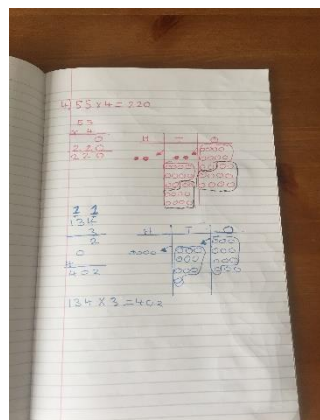 4) 55 x 4 = 220
55
x 4
0
220
220
H T O
1 1
134
3
2
0
4
402
H T O
134 x 3 = 402